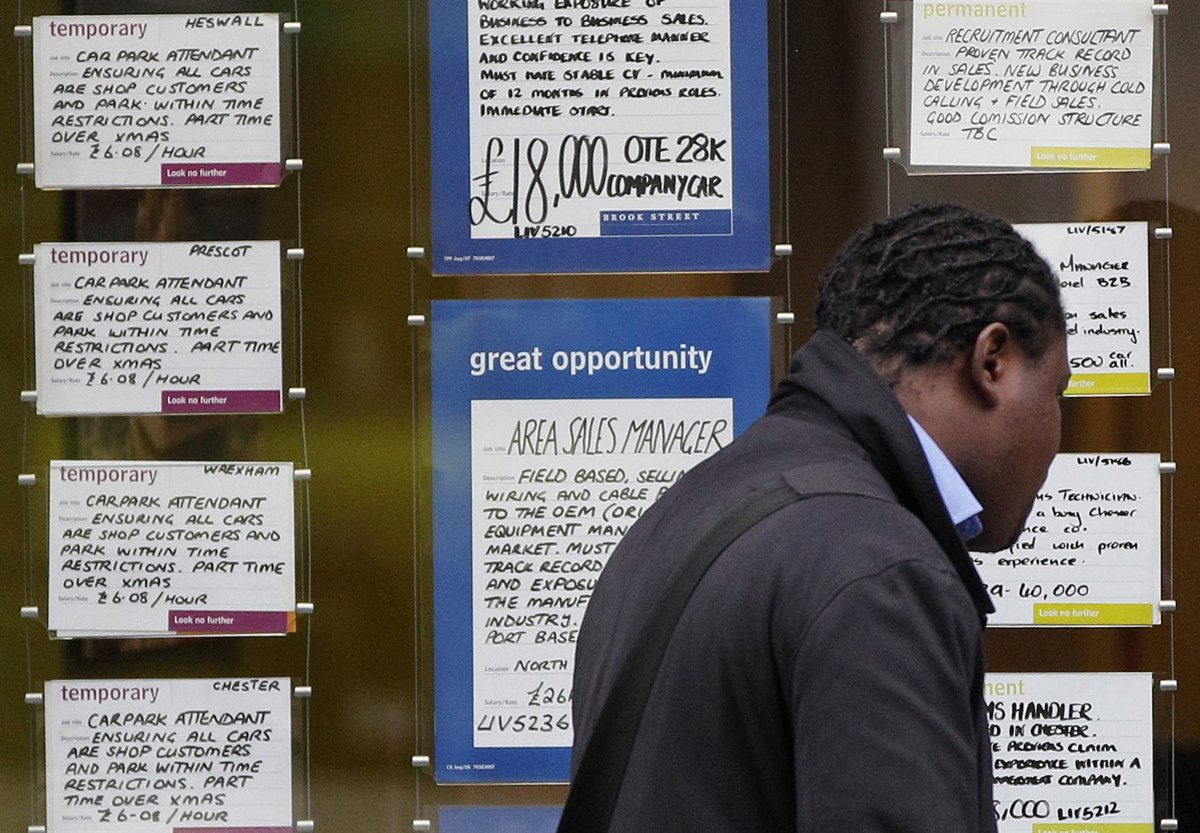 temporary HESWALL
Job title CAR PARK ATTENDANT
Description ENSURING ALL CARS
ARE SHOP CUSTOMERS
AND PARK WITHIN TIME
RESTRICTIONS. PART TIME
OVER XMAS
Salary/Rate £6.08/HOUR
Look no further
temporary PRESCOT
Job title CAR PARK ATTENDANT
Description ENSURING ALL CARS
ARE SHOP CUSTOMERS AND
PARK WITHIN TIME
RESTRICTIONS. PART TIME
OVER XMAS
Salary/Rate £6.08/HOUR
Look no further
temporary WREXHAM
Job title CARPARK ATTENDANT
Description ENSURING ALL CARS
ARE SHOP CUSTOMERS AND
PARK WITHIN TIME
RESTRICTIONS. PART TIME
OVER XMAS
Salary/Rate £6.08/HOUR
Look no further
temporary CHESTER
Job title CARPARK ATTENDANT
Description ENSURING ALL CARS
ARE SHOP CUSTOMERS
AND PARK WITHIN TIME
RESTRICTIONS. PART
TIME OVER XMAS
Salary/Rate £6-08/HOUR
WORKING EXPOSURE OF
BUSINESS TO BUSINESS SALES.
EXCELLENT TELEPHONE MANNER
AND CONFIDENCE IS KEY.
MUST HAVE STABLE CV - MINIMUM
OF 12 MONTHS IN PREVIOUS ROLES.
IMMEDIATE START.
Location
£18,000 OTE 28K
Salary/Rate COMPANY CAR
LIV5210
BROOK STREET
great opportunity
Job title AREA SALES MANAGER
Description FIELD BASED, SELLIN
WIRING AND CABLE
TO THE OEM (ORI
EQUIPMENT MAN
MARKET. MUST
TRACK RECORD
AND EXPOSU
THE MANUF
INDUSTRY.
PORT BASE
Location NORTH
Salary/Rate £26K
LIV5236
permanent
Job title RECRUITMENT CONSULTANT
Description PROVEN TRACK RECORD
IN SALES. NEW BUSINESS
DEVELOPMENT THROUGH COLD
CALLING + FIELD SALES.
GOOD COMISSION STRUCTURE
Salary/Rate TBC
Look no further
LIV/5187
MANAGER
B2B
sales
industry.
500 car
all.
further
TECHNICIAN.
a busy Chester
nce co.
fied with proven
experience.
- 40,000
Look no further
nent
MS HANDLER.
D IN CHESTER.
E PREVIOUS CLAIM
EXPERIENCE WITHIN A
COMPANY.
,000 LIV5212